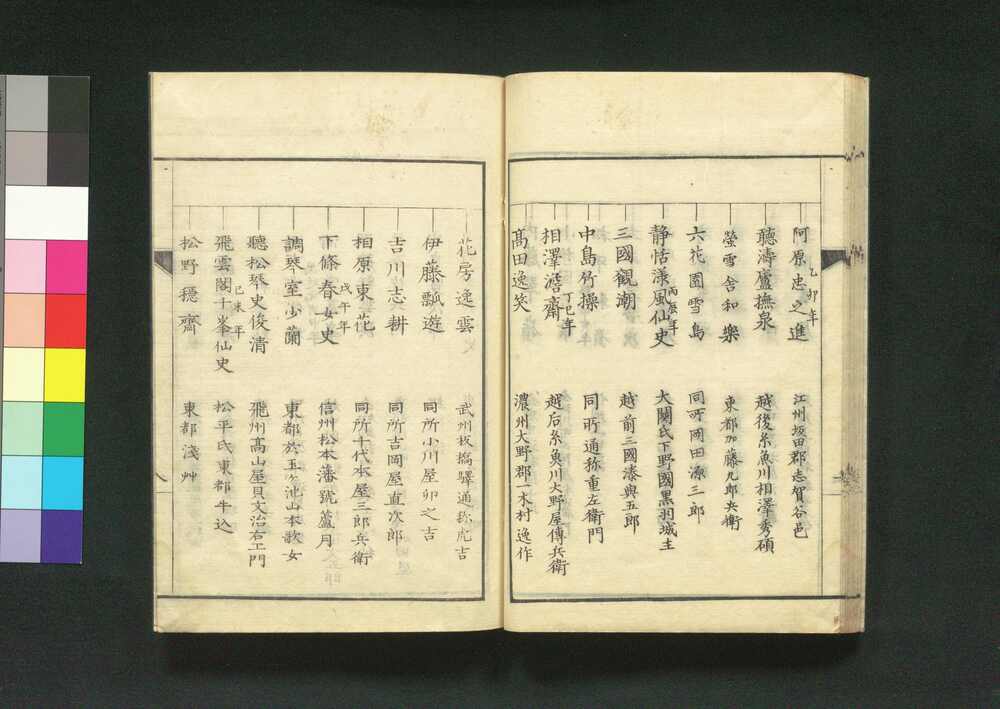 乙卯年
阿原忠之進 江州坂田郡志賀谷邑
聽濤廬撫泉 越後糸魚川相澤秀碩
螢雪舎和樂 東都加藤九郎兵衛
六花園雪島 同所岡田源三郎
丙辰年
静恬漾風仙史 大關氏下野國黒羽城主
三國觀潮 越前三國湊與五郎
中島竹操 同所通称重左衛門
丁巳年
相澤澹齋 越后糸魚川大野屋傳兵衛
髙田逸笑 濃州大野郡一木村逸作
花房逸雲 武州板橋驛通称虎吉
伊藤瓢遊 同所小川屋卯之吉
吉川志耕 同所吉岡屋直次郎
相原東花 同所千代本屋三郎兵衛
戊午年
下條春女史 信州松本藩號蘆月
調琴室少蘭 東都於玉ヶ池山本歌女
聽松琴史俊清 飛州髙山屋貝文治右エ門
己未年
飛雲閣十峯仙史 松平氏東都牛込
松野穏齋 東都淺艸
八